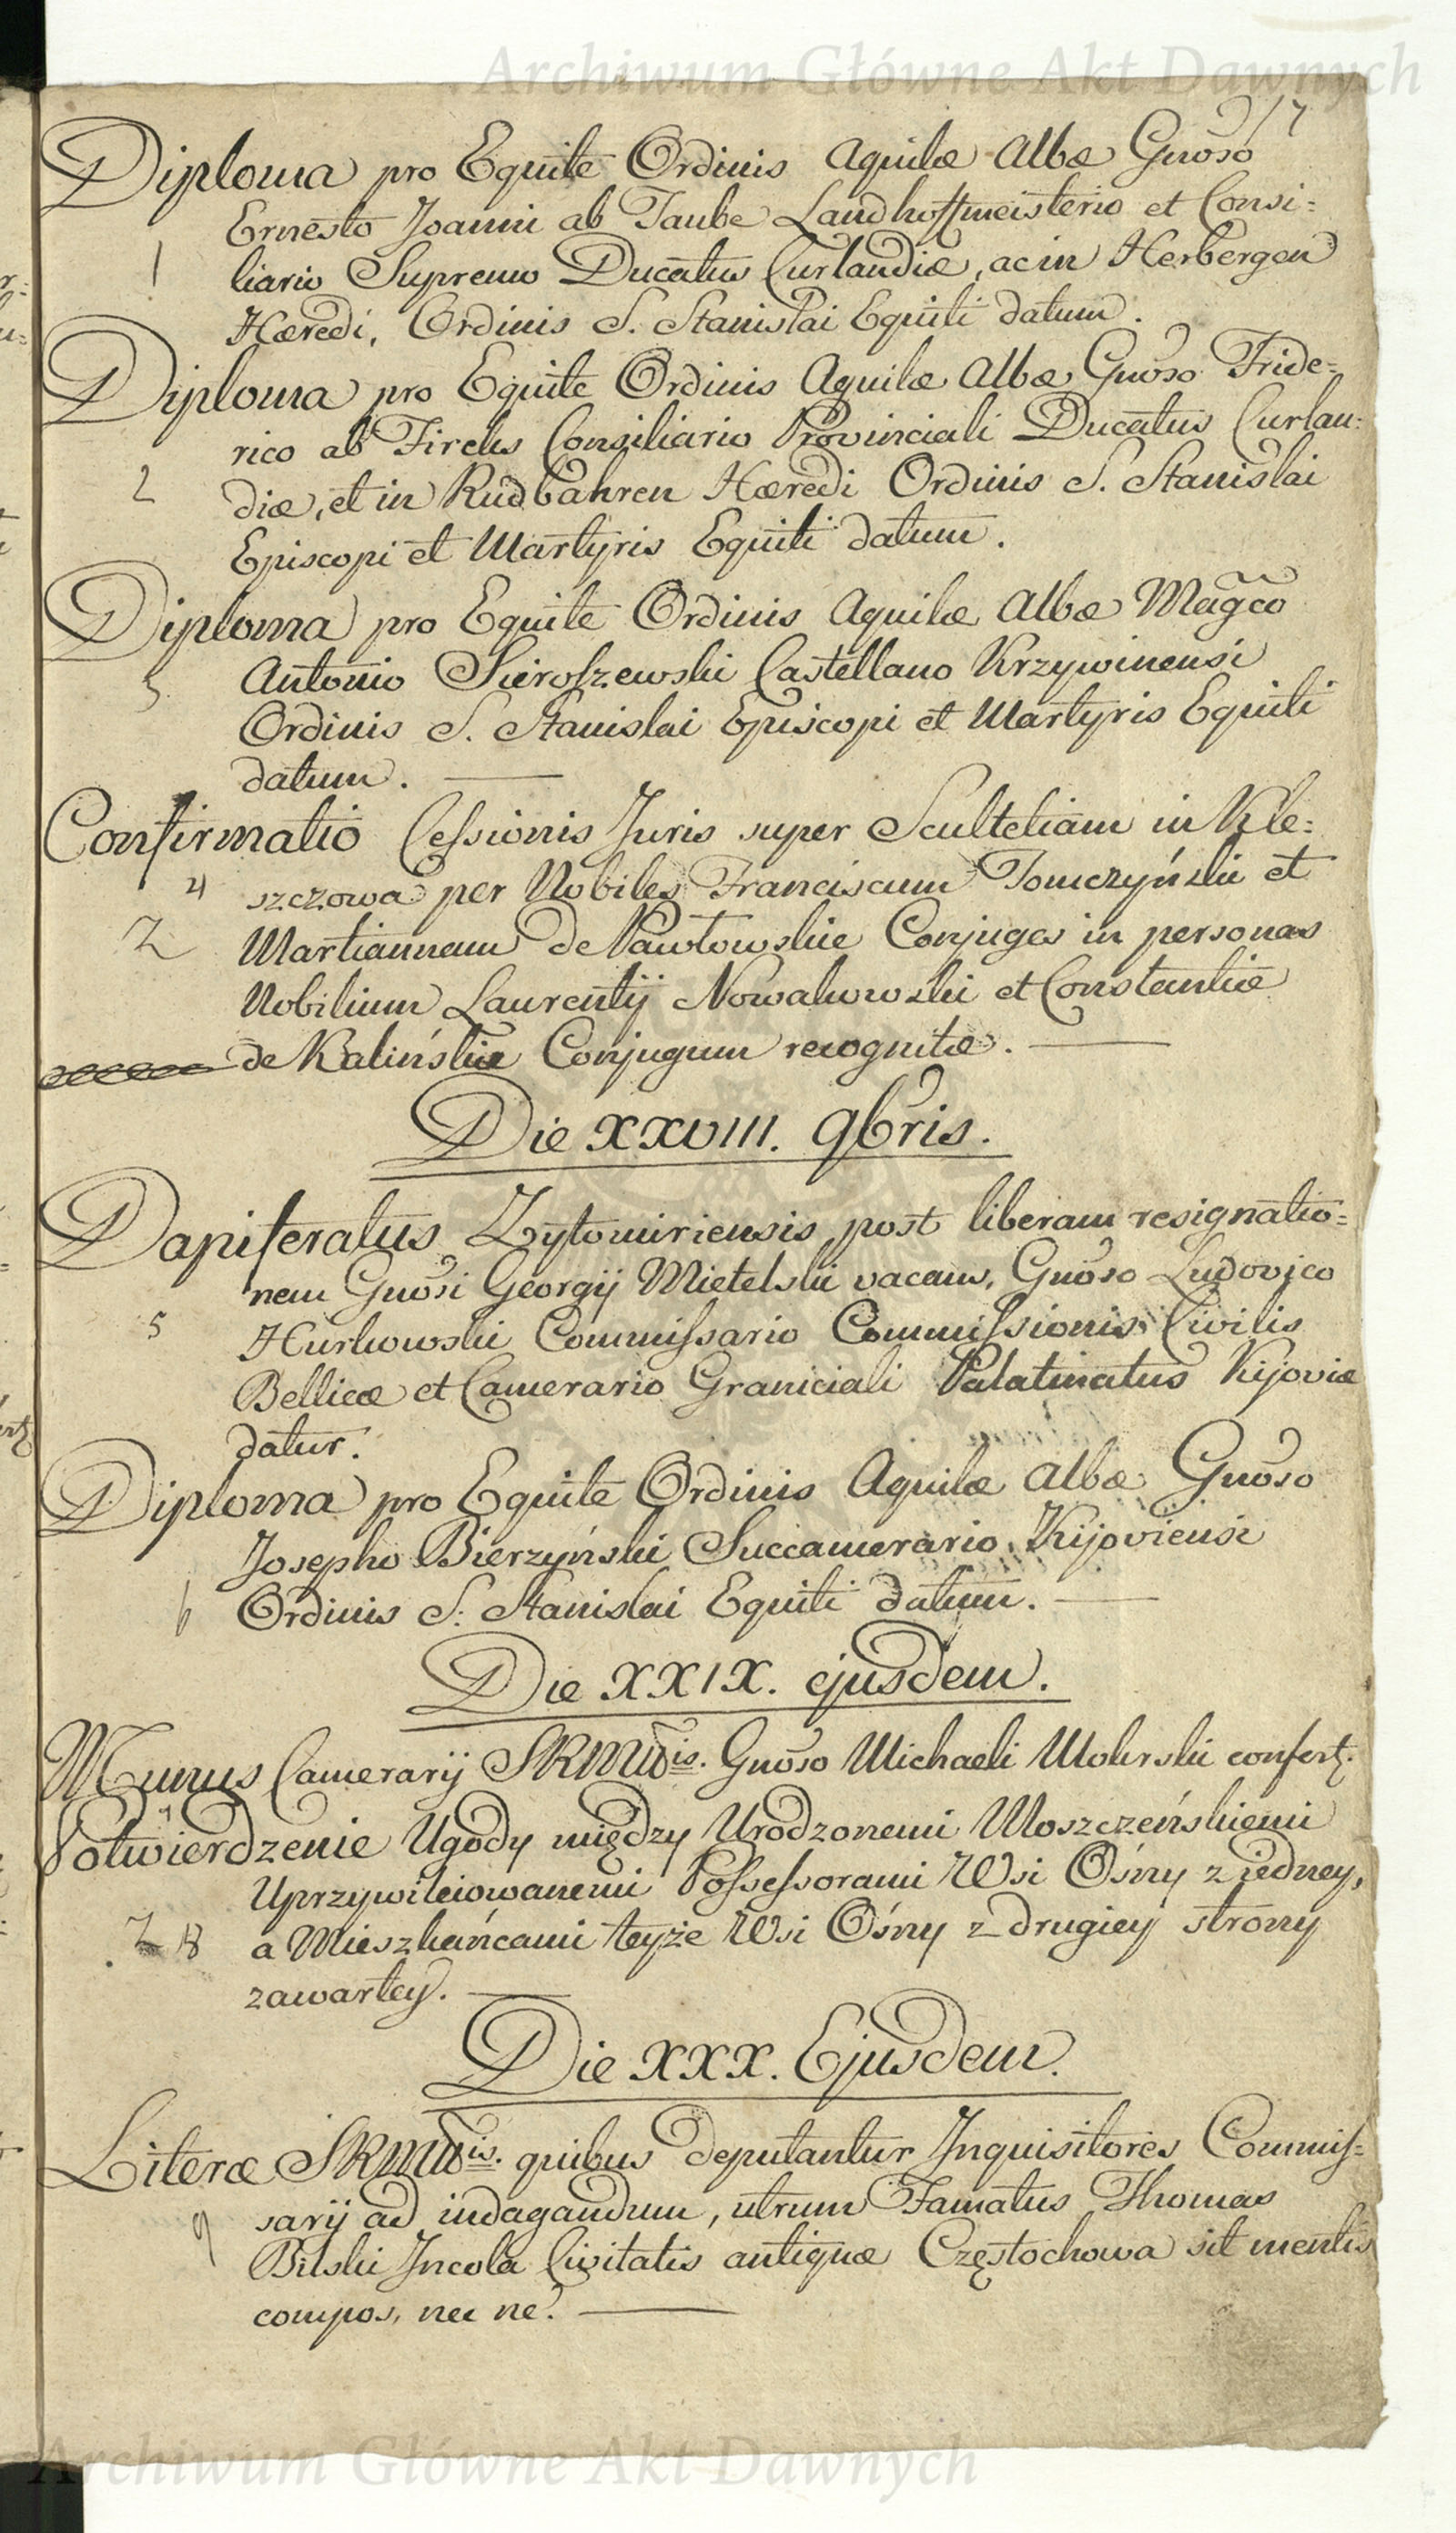 Archiwum Główne Akt Dawnych
17
Diploma pro Equite Ordinis Aquilæ Albæ Gnoso
Ernesto Joanni ab Taube Landhoffmeisterio et Consi=
1
liario Supremo Ducatus Curlandiæ, ac in Herbergen
Hæredi, Ordinis S. Stanislai Equiti datum.
Diploma pro Equite Ordinis Aquilæ Albæ Gnoso Fride=
rico ab Fircks Consiliario Provinciali Ducatus Curlan=
2
diæ, et in Rudbahren Hæredi Ordinis S. Stanislai
Episcopi et Martyris Equiti datum.
Diploma pro Equite Ordinis Aquilæ Albæ Magco
3
Antonio Sieroszewski Castellano Krzywinensi
Ordinis S. Stanislai Episcopi et Martyris Equiti
datum.
Confirmatio Cessionis Juris super Scultetiam in Kle=
4
szczowa per Nobiles Franciscum Tomczyński et
Z
Martiannam de Pawłowskie Conjuges in personas
Nobilium Laurentij Nowakowski et Constantiæ
de Kalińskie Conjugum recognitæ.
Die XXVIII. 9bris.
Dapiferatus Zytomiriensis post liberam resignatio=
nem Gnosi Georgij Mietelski vacans, Gnoso Ludovico
5
Hurkowski Commissario Commissionis Civilis
Bellicæ et Camerario Graniciali Palatinatus Kijoviæ
datur.
Diploma pro Equite Ordinis Aquilæ Albæ Gnoso
Josepho Bierzyński Succamerario Kijoviensi
6
Ordinis S. Stanislai Equiti datum.
Die XXIX. ejusdem.
Munus Camerarij SRMtis. Gnoso Michaeli Mokrski confert.
7
Potwierdzenie Ugody między Urodzonemi Moszczeńskiemi
Uprzywileiowanemi Possessorami Wsi Ośny z iedney,
Z 8
a Mieszkańcami teyże Wsi Ośny z drugiey strony
zawartey.
Die XXX. Ejusdem.
Literæ SRMtis. quibus deputantur Inquisitores Commis=
sarij ad indagandum, utrum Famatus Thomas
9
Bilski Incola Civitatis antiquæ Częstochowa sit mentis
compos, nec ne.
Archiwum Główne Akt Dawnych